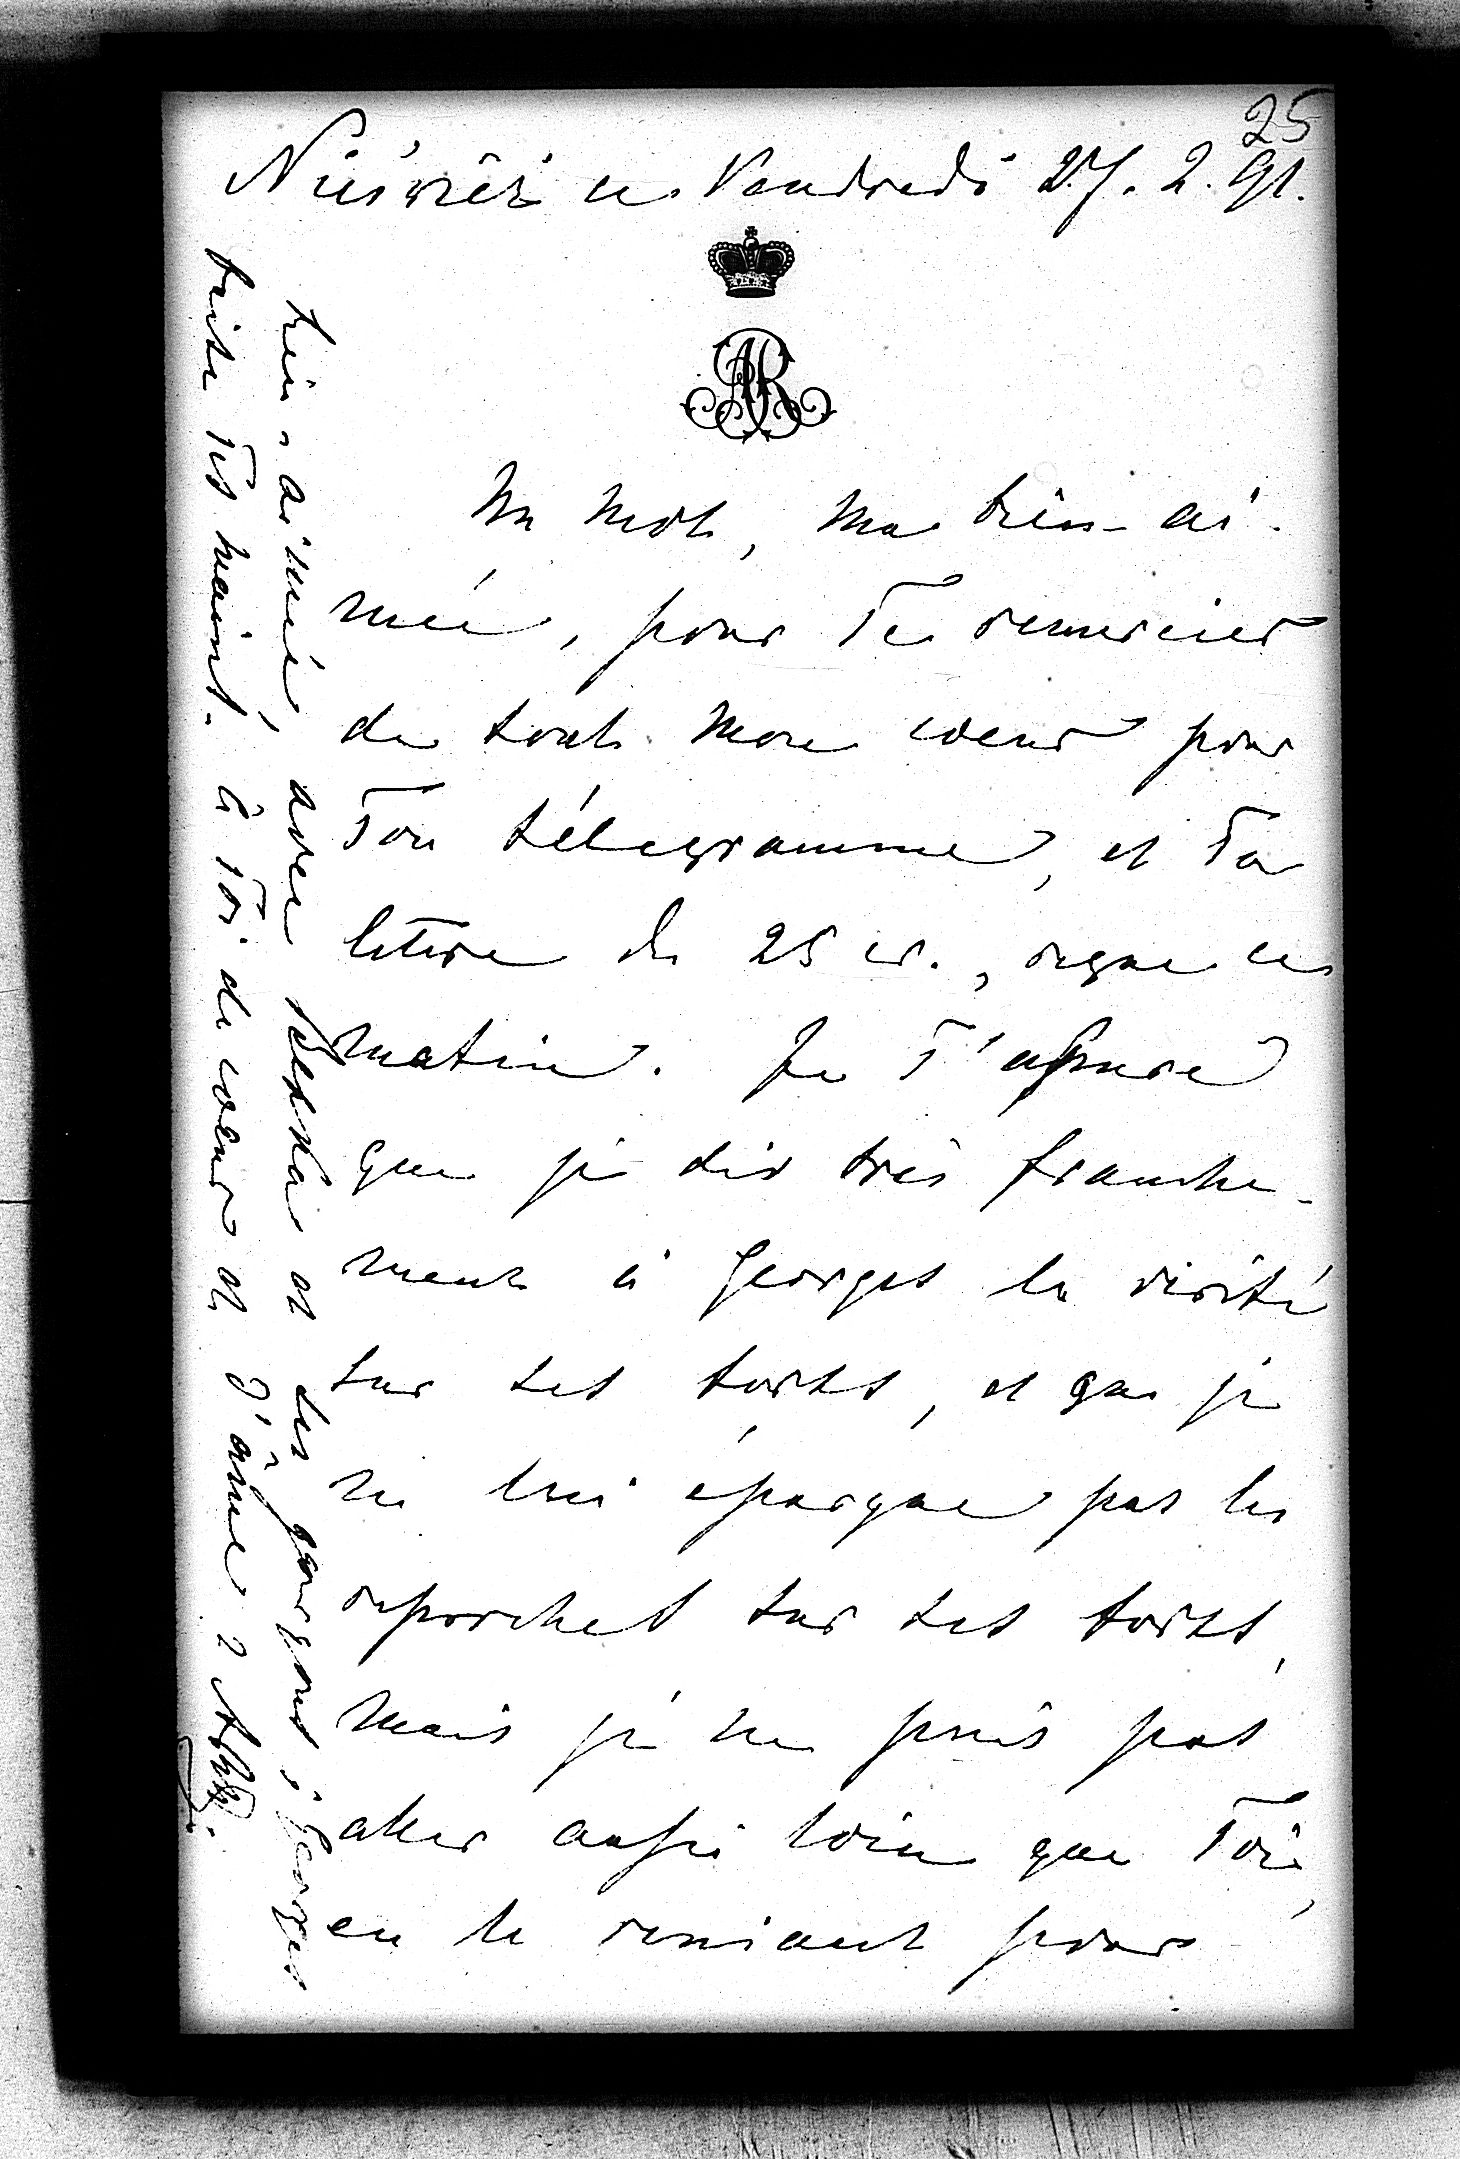 25
Nieśwież ce Vendredi 27. 2. 91.
AR
Un mot, ma bien-ai-
mée, pour Te remercier
de tout mon coeur pour
Ton télégramme, et Ta
lettre du 25 cr., reçue ce
matin. Je T'assure
que je dis très franche-
ment à Georges la vérité
sur ses torts, et que je
ne lui épargne pas les
reproches sur ses torts,
mais je ne puis pas
aller aussi loin que Toi,
en le reniant pour
bien-aimée, avec et les garçons; Georges
baise Tes mains. à Toi de coeur et d'âme